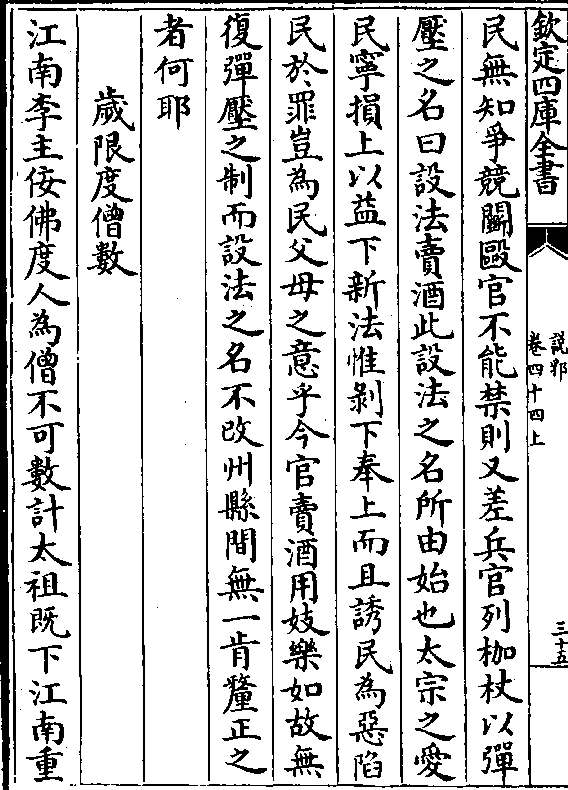 欽定四庫全書
說郛
卷四十四上
三十五
民無知爭競鬬毆官不能禁則又差兵官列枷杖以彈
壓之名曰設法賣酒此設法之名所由始也太宗之愛
民寧損上以益下新法惟剝下奉上而且誘民為惡陷
民於罪豈為民父母之意乎今官賣酒用妓樂如故無
復彈壓之制而設法之名不改州縣間無一肯釐正之
者何耶
歲限度僧數
江南李主佞佛度人為僧不可數計太祖既下江南重